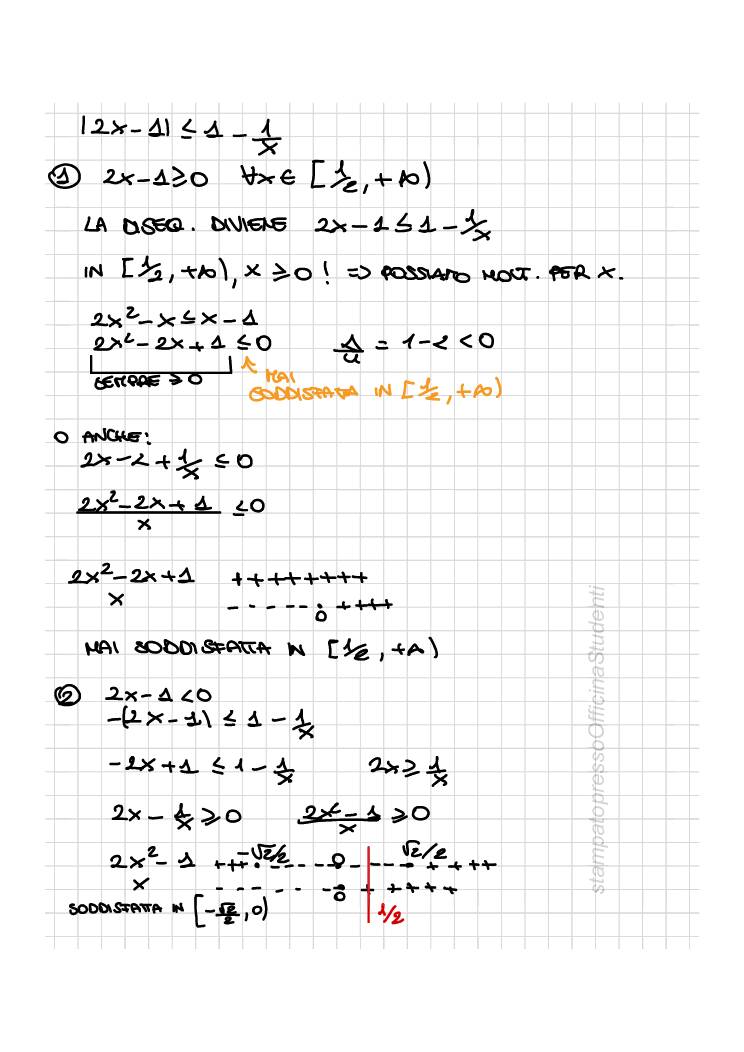 |2x-1| ≤ 1 - 1/x
① 2x-1≥0 ∀x∈ [1/2, +∞)
LA DISEQ. DIVIENE 2x-1 ≤ 1 - 1/x
IN [1/2, +∞), x ≥ 0 ! => POSSIAMO MOLT. PER x.
2x²-x ≤ x-1
2x²-2x+1 ≤0 Δ/4 = 1-2 <0
SEMPRE ≥ 0
MAI
SODDISFATTA IN [1/2, +∞)
O ANCHE:
2x-2+1/x ≤ 0
2x²-2x+1/x ≤0
2x²-2x+1 ++++++++
x - - - - - - 0 ++++
MAI SODDISFATTA IN [1/2, +∞)
② 2x-1<0
-(2x-1) ≤ 1 - 1/x
-2x+1 ≤ 1 - 1/x 2x ≥ 1/x
2x - 1/x ≥ 0 2x²-1/x ≥0
-√2/2 0 √2/2
2x²-1 +++ - - - - - - - - ++++
x - - - - - - - 0 + ++++
SODDISFATTA IN [-√2/2, 0) 1/2
stampatopressoOfficinaStudenti